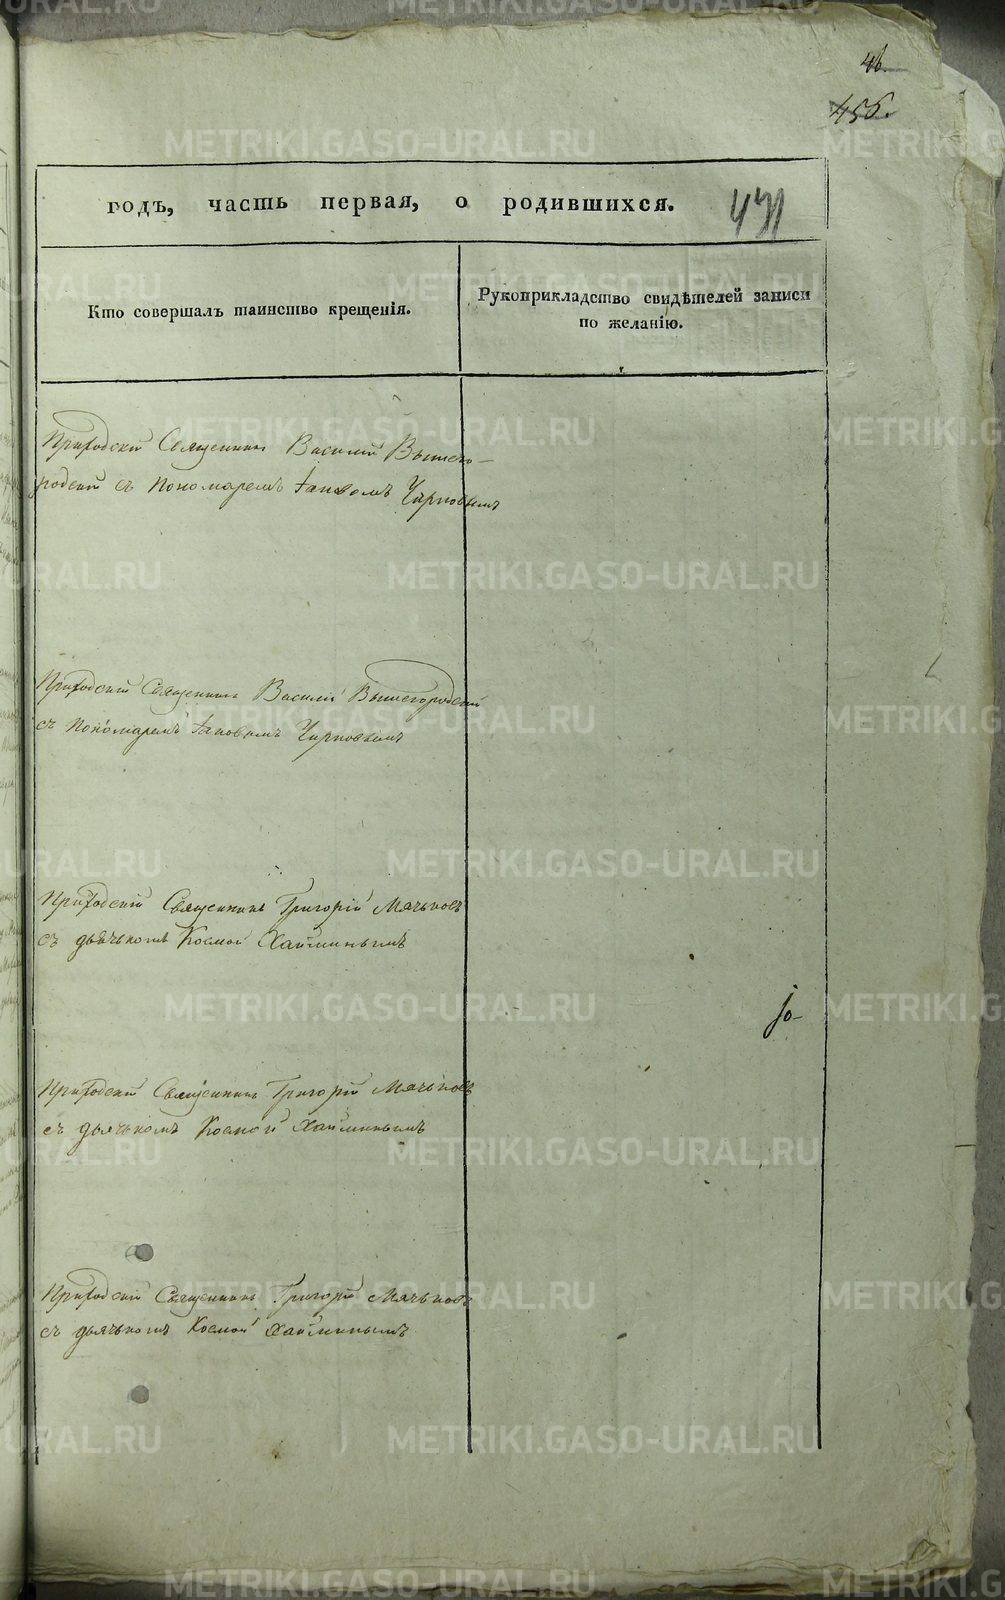 46.
456.
годъ, часть первая, о родившихся.
431
Кто совершалъ таинство крещенія.
Рукоприкладство свидѣтелей записи
по желанію.
Приходскій Священникъ Василій Вышего-
родскій съ пономаремъ Іаковомъ Чирковымъ
Приходскій Священникъ Василій Вышегородскій
съ Пономаремъ Іаковомъ Чирковымъ
Приходскій Священникъ Григорій Мячьковъ
съ дьячькомъ Космой Хайминымъ
Приходскій Священникъ Григорій Мячьковъ
съ дьячькомъ Космой Хайминымъ
Приходскій Священникъ Григорій Мячьковъ
съ дьячькомъ Космой Хайминымъ
METRIKI.GASO-URAL.RU